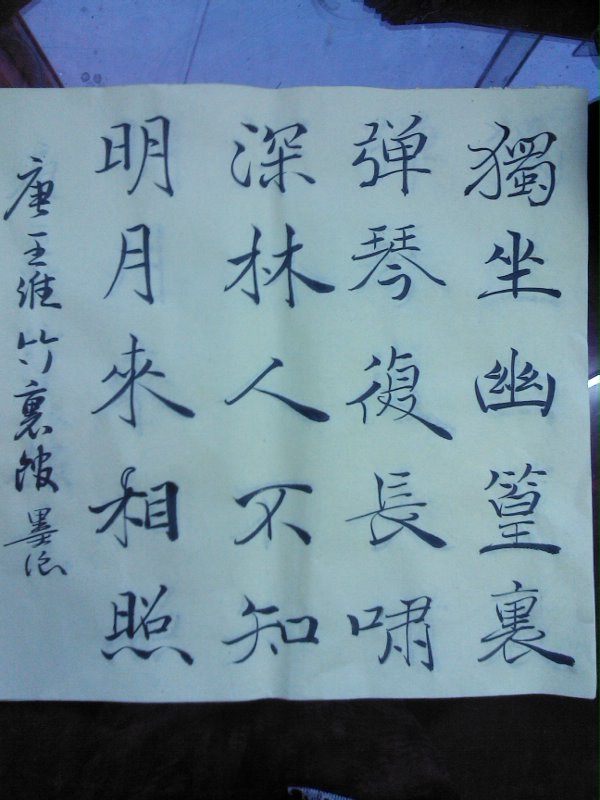 獨坐幽篁裏
弹琴復長啸
深林人不知
明月來相照
唐王維竹裏館墨浪